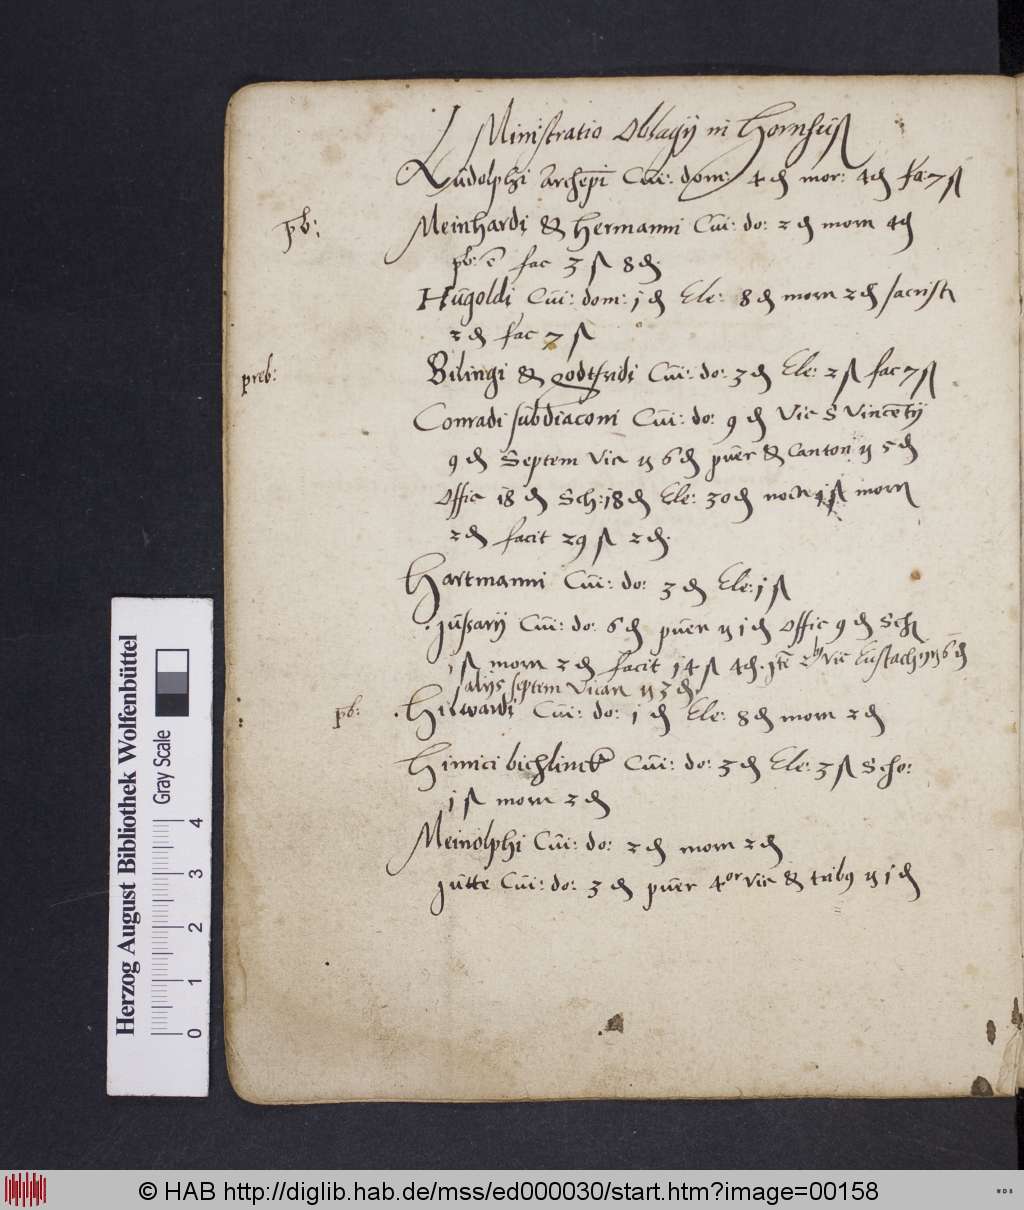 Ministratio Oblagij in Hornhuß
Ludolphi Archepi Cuil: dom: 4 ₰ mor: 4₰ fa: 7 ß
pb:
Meinhardi & Hermanni Cui: do: 2 ₰ morn 4₰
pb: e fac 3 ß 8 ₰.
Hugoldi Cui: dom: j ₰ Ele: 8 ₰ morn 2 ₰ sacrist
2 ₰ fac 7 ß
preb:
Bilingi & godtfridi Cui: do: 3 ₰ Ele: 2 ß fac 7 ß
Conradi subdiaconi Cui: do: 9 ₰ Vic S Vincentij
9 ₰ Septem Vic 6 ₰ puer & Canton 5 ₰
Offic 18 ₰ Sch: 18 ₰ Ele: 30 ₰ morn
2 ₰ facit 29 ß 2 ₰.
Hartmanni Cui: do: 3 ₰ Ele: j ß
Jussarij Cui: do: 6 ₰ puer 1 ₰ Offic 9 ₰ Sch
j ß morn 2 ₰ facit 14 ß 4 ₰. Ite 2 by Vic Eustachij 6 ₰
alijs septem Vicar 3 ₰.
pb:
Hilwardi Cui: do: 1 ₰ Ele: 8 ₰ morn 2 ₰
Hinrici bichlinck Cui: do: 3 ₰ Ele: 3 ß Scho:
j ß morn 2 ₰
Meinolphi Cui: do: 2 ₰ morn 2 ₰
Jutte Cui: do: 3 ₰ puer 4or vic & tribus 1 ₰
Herzog August Bibliothek Wolfenbüttel
Gray Scale
0 1 2 3 4
© HAB http://diglib.hab.de/mss/ed000030/start.htm?image=00158